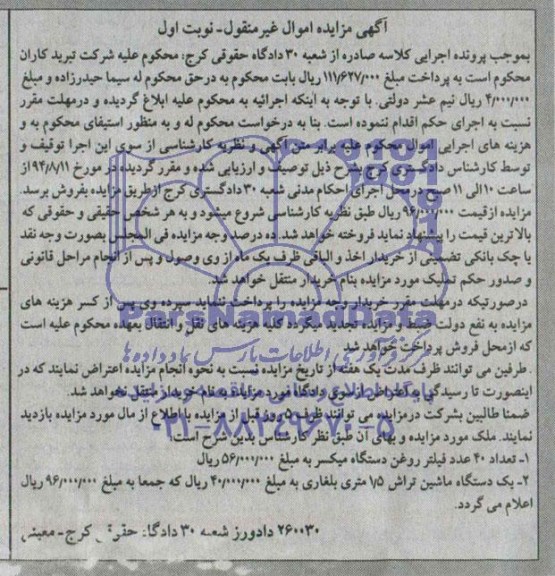 آگهی مزایده اموال غیرمنقول-نوبت اول
بموجب پرونده اجرایی کلاسه صادره از شعبه ۳۰ دادگاه حقوقی کرج: محکوم علیه شرکت تبرید کاران
محکوم است به پرداخت مبلغ ۱۱۱/۶۲۷/۰۰۰ ریال بابت محکوم به درحق محکوم له سیما حیدرزاده و مبلغ
۴/۰۰۰/۰۰۰ ریال نیم عشر دولتی. با توجه به اینکه اجرائیه به محکوم علیه ابلاغ گردیده و درمهلت مقرر
نسبت به اجرای حکم اقدام ننموده است. بنا به درخواست محکوم له و به منظور استیفای محکوم به و
هزینه های اجرایی اموال محکوم علیه برابر متن آگهی و نظریه کارشناسی از سوی این اجرا توقیف و
توسط کارشناس دادگستری کرج بشرح ذیل توصیف و ارزیابی شده و مقرر گردیده در مورخ ۹۴/۸/۱۱ از
ساعت ۱۰ الی ۱۱ صبح درمحل اجرای احکام مدنی شعبه ۳۰ دادگستری کرج ازطریق مزایده بفروش برسد.
مزایده از قیمت ۹۶/۰۰۰/۰۰۰ ریال طبق نظریه کارشناسی شروع میشود و به هر شخص حقیقی و حقوقی که
بالاترین قیمت را پیشنهاد نماید فروخته خواهد شد. ده درصد وجه مزایده فی المجلس بصورت وجه نقد
یا چک بانکی تضمینی از خریدار اخذ و الباقی ظرف یک ماه از وی وصول و پس از انجام مراحل قانونی
و صدور حکم تملیک مورد مزایده بنام خریدار منتقل خواهد شد.
درصورتیکه درمهلت مقرر خریدار وجه مزایده را پرداخت ننماید سپرده وی پس از کسر هزینه های
مزایده به نفع دولت ضبط و مزایده تجدید میگردد کلیه هزینه های نقل و انتقال بعهده محکوم علیه است
که ازمحل فروش پرداخت خواهد شد
. طرفین می توانند ظرف مدت یک هفته از تاریخ مزایده نسبت به نحوه انجام مزایده اعتراض نمایند که در
اینصورت تا رسیدگی به اعتراض ازسوی دادگاه مورد مزایده به نام خریدار منتقل نخواهد شد.
ضمنا طالبین بشرکت درمزایده می توانند ظرف ۵ روز قبل از مزایده با اطلاع از مال مورد مزایده بازدید
نمایند. ملک مورد مزایده و بهای آن طبق نظر کارشناس بدین شرح است:
۱- تعداد ۴۰ عدد فیلتر روغن دستگاه میکسر به مبلغ ۵۶/۰۰۰/۰۰۰ ریال
۲- یک دستگاه ماشین تراش ۱/۵ متری بلغاری به مبلغ ۴۰/۰۰۰/۰۰۰ ریال که جمعا به مبلغ ۹۶/۰۰۰/۰۰۰ ریال
اعلام می گردد.
۲۶۰۰۳۰ دادورز شعبه ۳۰ دادگاه حقوقی کرج- معینی
ParsNamadData
مرکز فرآوری اطلاعات پارس نماد داده ها
پایگاه اطلاع رسانی مناقصه و مزایده
۰۲۱-۸۸۳۴۹۶۷۰-۵